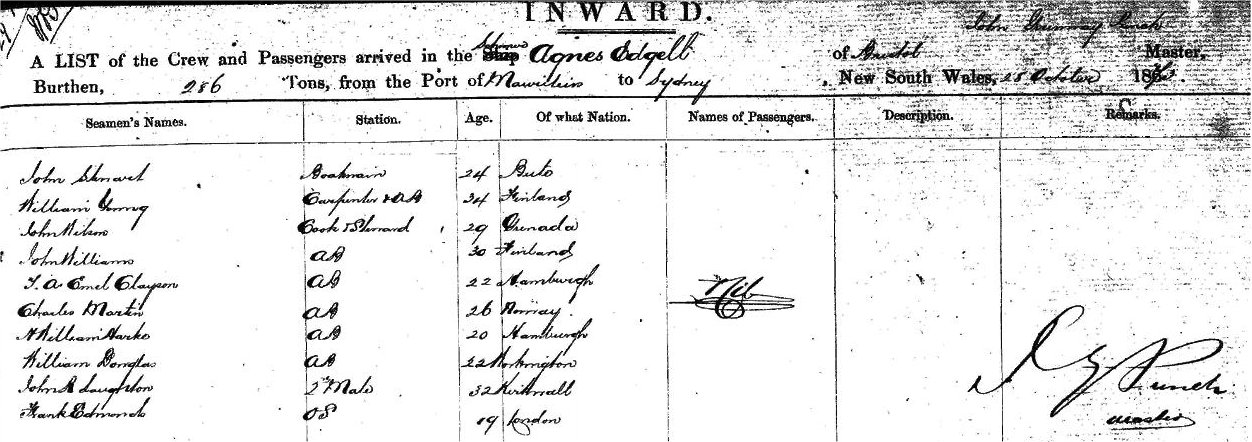 INWARD.
A LIST of the Crew and Passengers arrived in the Ship Agnes Edgell of Bristol Master,
Burthen, 286 Tons, from the Port of Mauritius to Sydney, New South Wales, 28 October 18
Seamen's Names. Station. Age. Of what Nation. Names of Passengers. Description. Remarks.
John Stewart Boatswain 24 Bute
William Young Carpenter & AB 34 Finland
John Wilson Cook & Steward 29 Grenada
John Williams AB 30 Finland
T. A. Emel Clayson AB 22 Hamburgh Nil
Charles Martin AB 26 Norway
William Harke AB 20 Hamburgh
William Douglas AB 22 Workington
John R Laughton 2nd Mate 32 Kirkwall
Frank Edmonds OS 19 London
J G Punch
Master